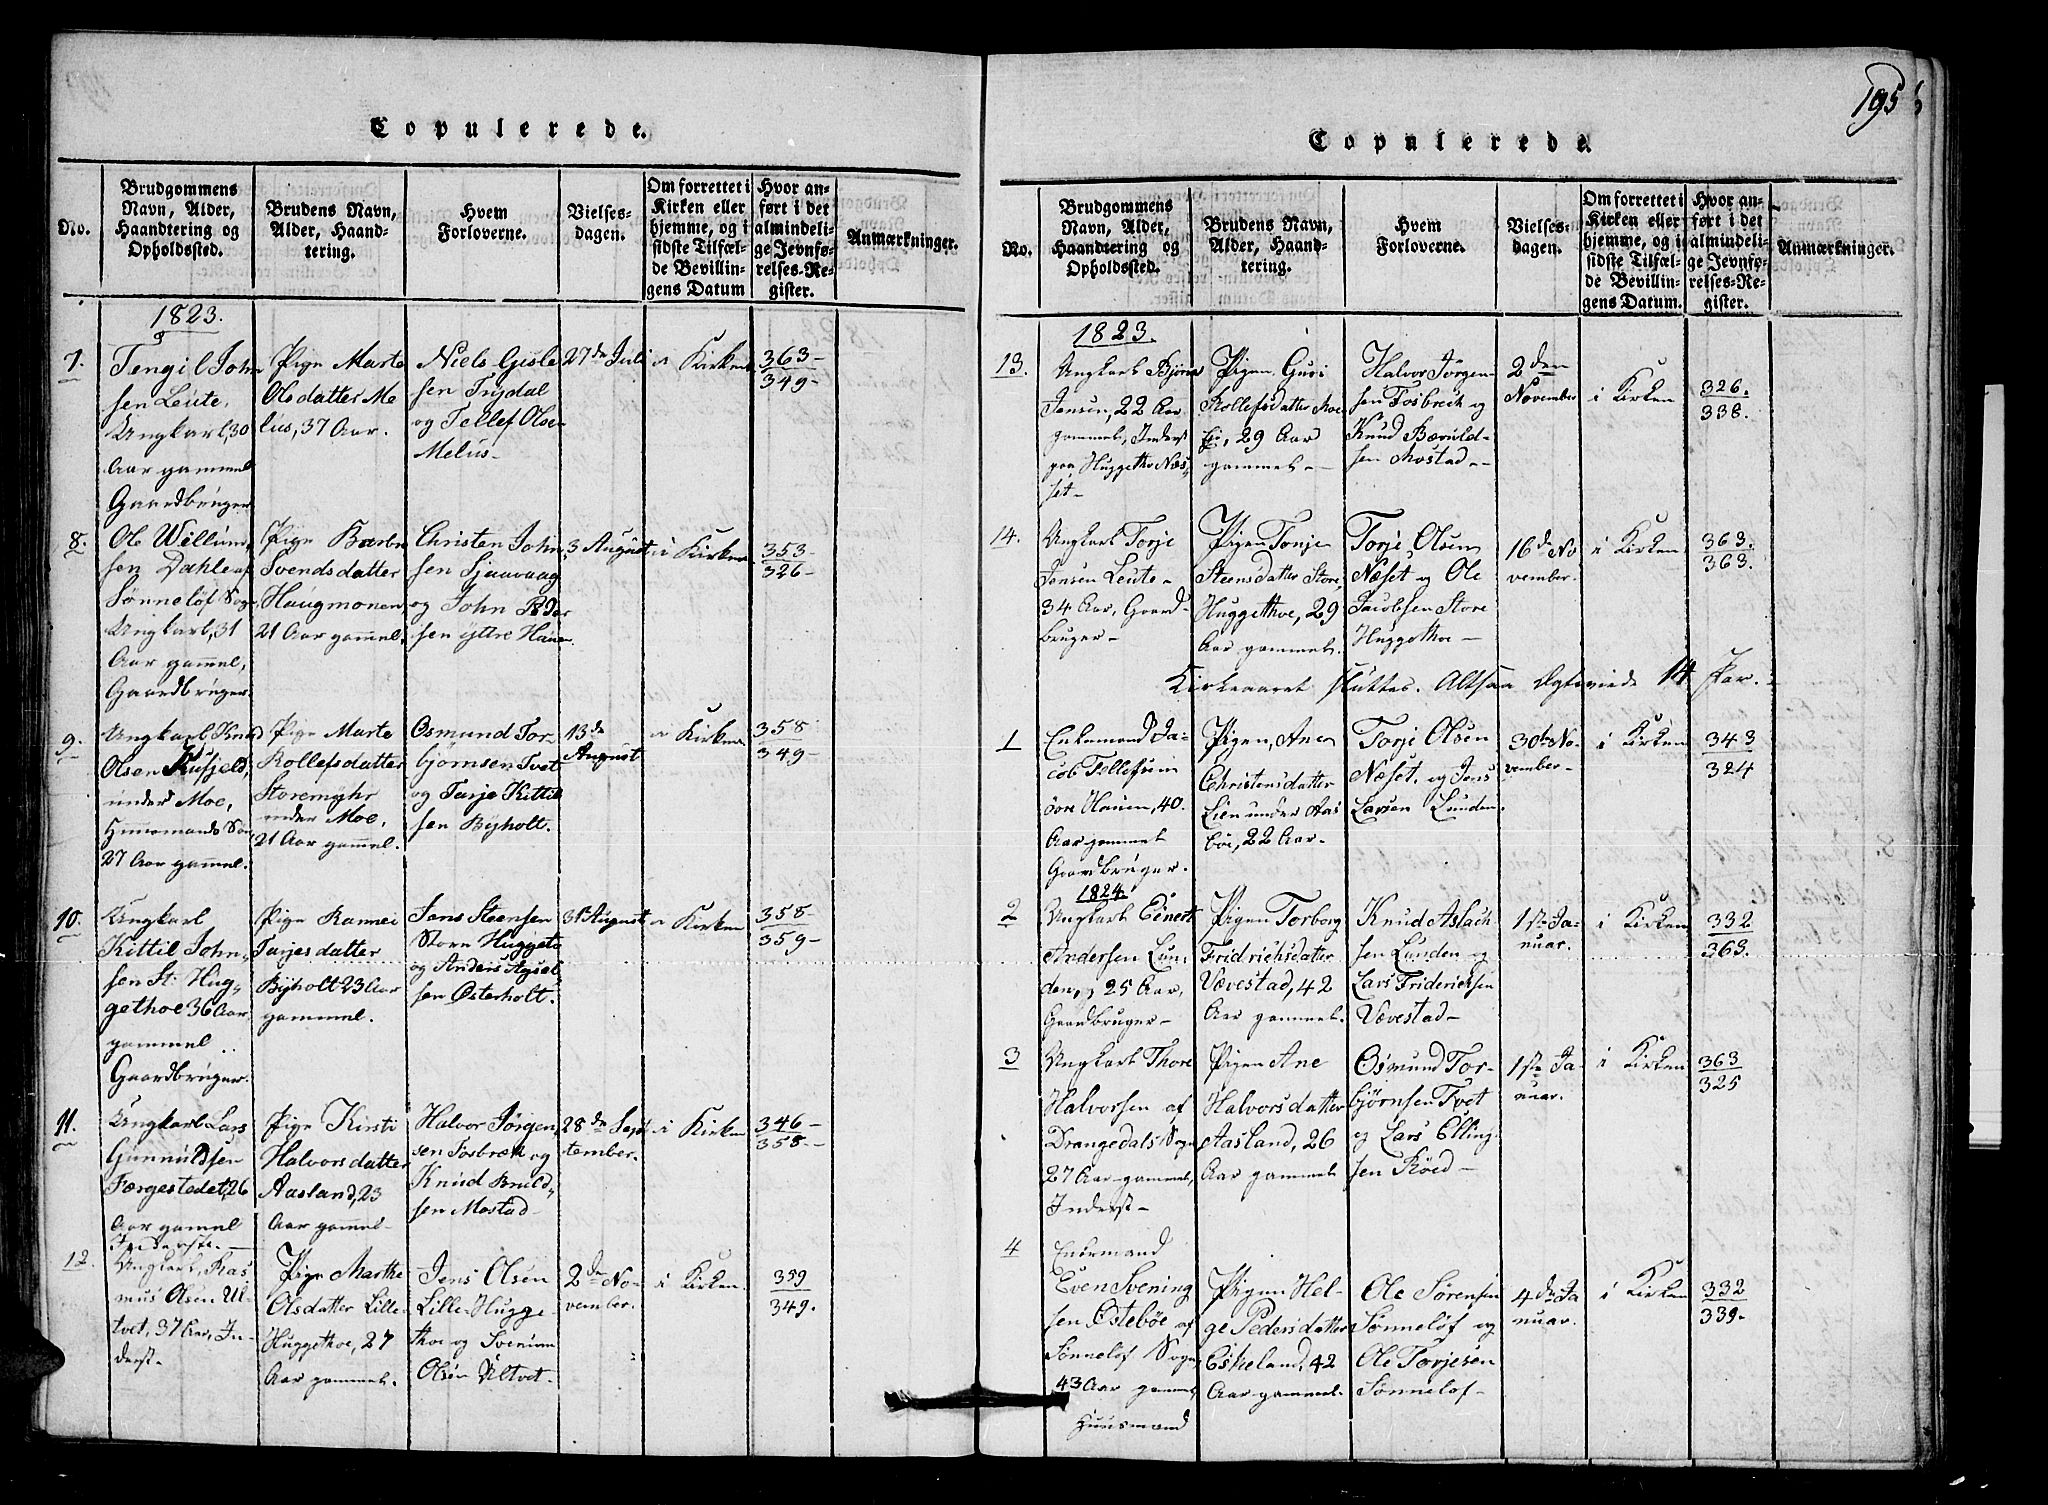 195
Copulerede.
No.
Brudgommens
Navn, Alder,
Haandtering og
Opholdssted.
Brudens Navn,
Alder, Haand-
tering.
Hvem
Forloverne.
Vielses-
dagen.
Om forrettet i
Kirken eller
hjemme, og i
sidste Tilfæl-
de Bevillin-
gens Datum
Hvor an-
ført i det
almindeli-
ge Jevnfø-
relses-Re-
gister.
Anmærkninger.
1823.
7.
Tengil John
sen Leute,
Ungkarl, 30
Aar gammel
Gaardbruger
Pige Marte
Olsdatter Me
lus, 37 Aar.
Niels Gisle
sen Trydal
og Tellef Olse
Melus-
27de Juli
i Kirken
363-
349-
8.
Ole Willum
sen Dahle af
Sønneløf Sogn
Ungkarl, 31
Aar gammel,
Gaardbruger.
Pige Barbr
Svendsdatter
Haugmonen,
21 Aar gammel.
Christen John
sen Sjaavaag
og John Peder
sen yttre Hauen.
3 August
i Kirken
353-
326-
9.
Ungkarl Knud
Olsen Kufjeld,
under Moe,
Huusmands Søn
27 Aar gammel.
Pige Marte
Rollefsdatter
Storemyhr
under Moe,
21 Aar gammel.
Osmund Tor-
bjørnsen Tvet
og Tarje Kittil
sen Byholt.
13de
August
i Kirken
358
349-
10.
Ungkarl
Kittil John-
sen St: Hug-
gethoe 36 Aar
gammel
Gaardbruger.
Pige Rannei
Tarjesdatter
Byholt 23 Aar
gammel.
Jens Steensen
Store Huggeto
og Anders Aysel
sen Østerholt.
31te August
i Kirken
358-
359-
11.
Ungkarl Lars
Gunnuldsen
Færgestedet, 26
Aar gamel
Inderste.
Pige Kirsti
Halvorsdatter
Aasland, 23
Aar gammel-
Halvor Jørgen
sen Fosbræk og
Knud Bruld-
sen Mostad-
28de Sep
tember.
i Kirken
346-
358-
12.
Ungkarl, Ras
mus Olsen Ul-
tvet, 37 Aar, In-
derst-
Pige Marthe
Olsdatter Lille-
Huggethoe, 27
Aar gammel.
Jens Olsen
Lille-Hugge
thoe og Svenum
Olsen Ultvet-
2de No-
vember.
i Kirken.
359
349.
Copulerede.
No.
Brudgommens
Navn, Alder,
Haandtering og
Opholdssted.
Brudens Navn,
Alder, Haand-
tering.
Hvem
Forloverne.
Vielses-
dagen.
Om forrettet i
Kirken eller
hjemme, og i
sidste Tilfæl-
de Bevillin-
gens Datum.
Hvor an-
ført i det
almindeli-
ge Jevnfø-
relses-Re-
gister.
Anmærkninger.
1823.
13.
Ungkarl Bjørn
Jensen, 22 Aar
gammel, Inderst
paa Huggethe Næs-
set-
Pigen Guri
Rollefsdatter Moe
Ei, 29 Aar
gammel-
Halvor Jørgen
sen Fosbreik og
Knud Bæruld-
sen Mostad-
2den
November
i Kirken
326.
338.
14.
Ungkarl Torje
Jensen Leute-
34 Aar, Gaard-
bruger-
Pigen Tonje
Steensdatter Store
Huggethoe, 29
Aar gammel.
Torje Olsen
Næset og Ole
Jacobsen Store
Huggethoe-
16de No
vember.
i Kirken
363.
363.
Kirkeaaret sluttes. Altsaa Ægteviede 14 Par.-
1
Enkemand Ja-
cob Tellefsen in
dre Hauen, 40.
Aar gammel
Gaardbruger.
Pigen, Ane
Christensdatter
Lien under Aas
bøe, 22 Aar.
Torje Olsen
Næset, og Jens
Larsen Lunden.
30te No-
vember-
i Kirken
343
324
1824.
2
Ungkarl Einert
Andersen Lun-
den, 25 Aar,
Gaardbruger-
Pigen Torborg
Fridrichsdatter
Vævestad, 42
Aar gammel.
Knud Aslach
sen Lunden og
Lars Friderichsen
Vævestad-
1ste Ja-
nuar.
i Kirken
332
363.
3
Ungkarl Thore
Halvorsen af
Drangedals Sogn
27 Aar gammel,
Inderst-
Pigen Ane
Halvorsdatter
Aasland, 26
Aar gammel
Osmund Tor-
bjørnsen Tvet
og Lars Elling-
sen Røed-
1ste Ja-
nuar.
i Kirken
363
325
4
Enkemand
Even Svening
sen Østebøe af
Sønneløf Sogn,
43 Aar gammel
Huusmand
Pigen Hel-
ge Pedersdatter
Eskeland, 42
Aar gammel.
Ole Sørensen
Sønneløf og
Ole Torjesen
Sønneløf-
4de Ja
nuar.
i Kirken
332
339.